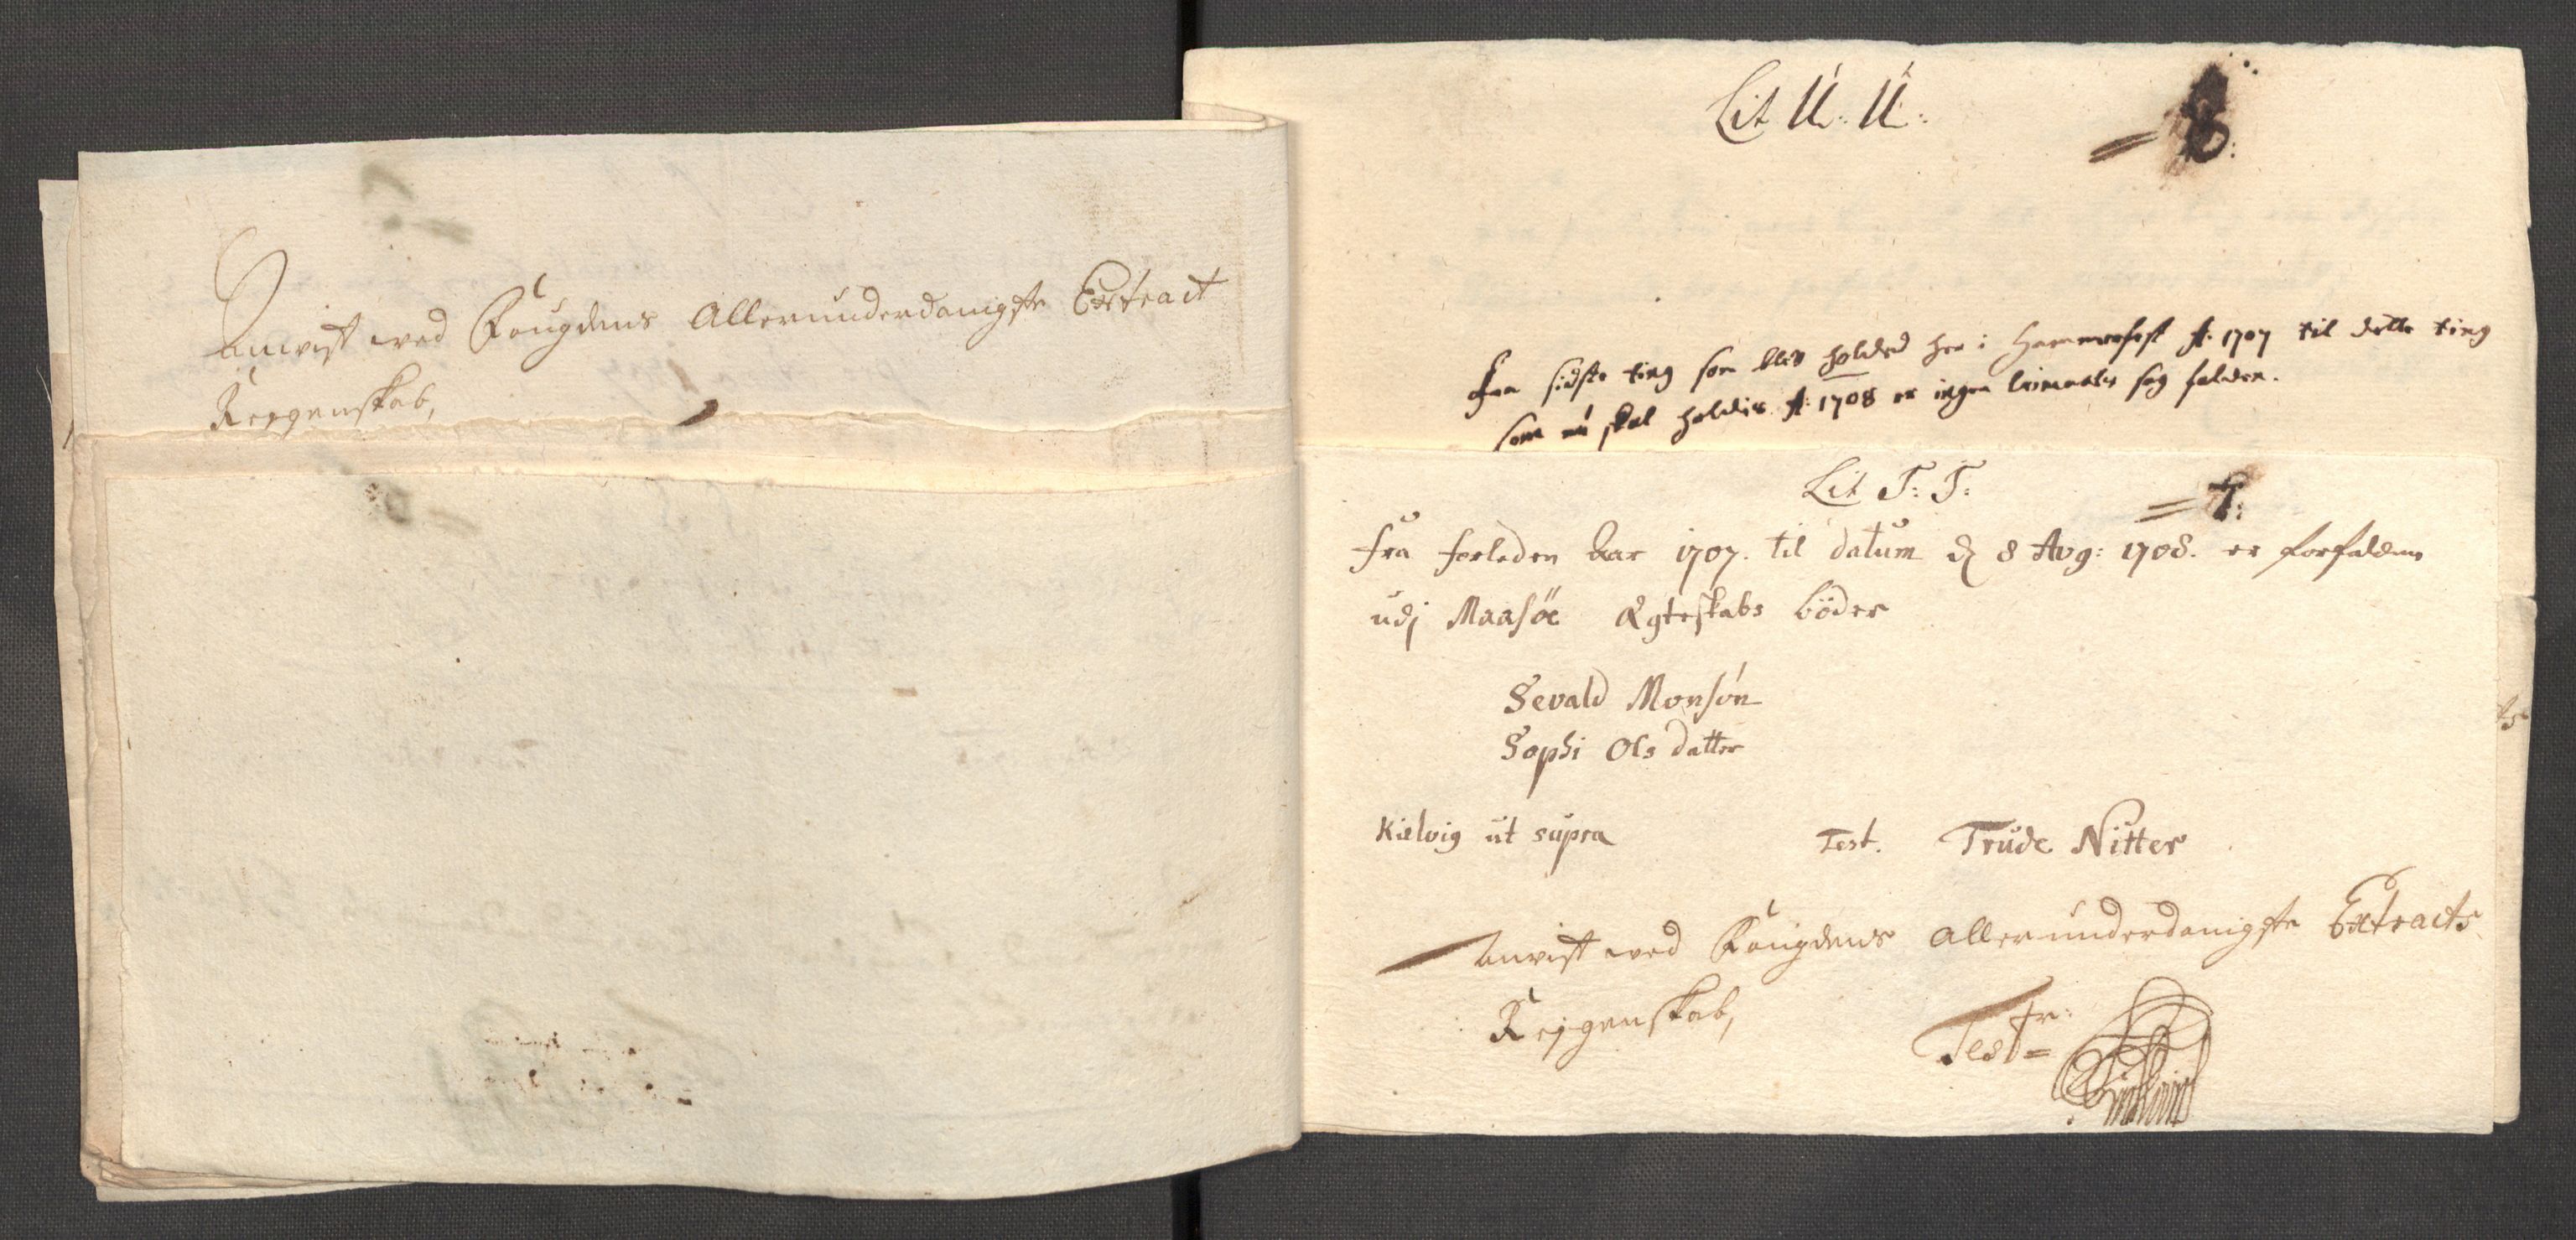 Anvist ved Fougdens Allerunderdanigste Extract
Reigenskab,
Lit U: U:
Fra sidste ting som blev holded her i Hammerfest Ao: 1707 til dette ting
som nu skal holdis Ao: 1708 er ingen Criminals sag falden.
Lit T: T:
T:
fra forleden Aar 1707. til datum d 8 Avg: 1708. er forfalden
udj Maasöe Ægteskabs böder
Sevald Monsön
Sophi Ols datter
Kielvig ut supra Test. Trude Nitter
Anvist ved Fougdens Allerunderdanigste Extracts
Reigenskab,
Testr: